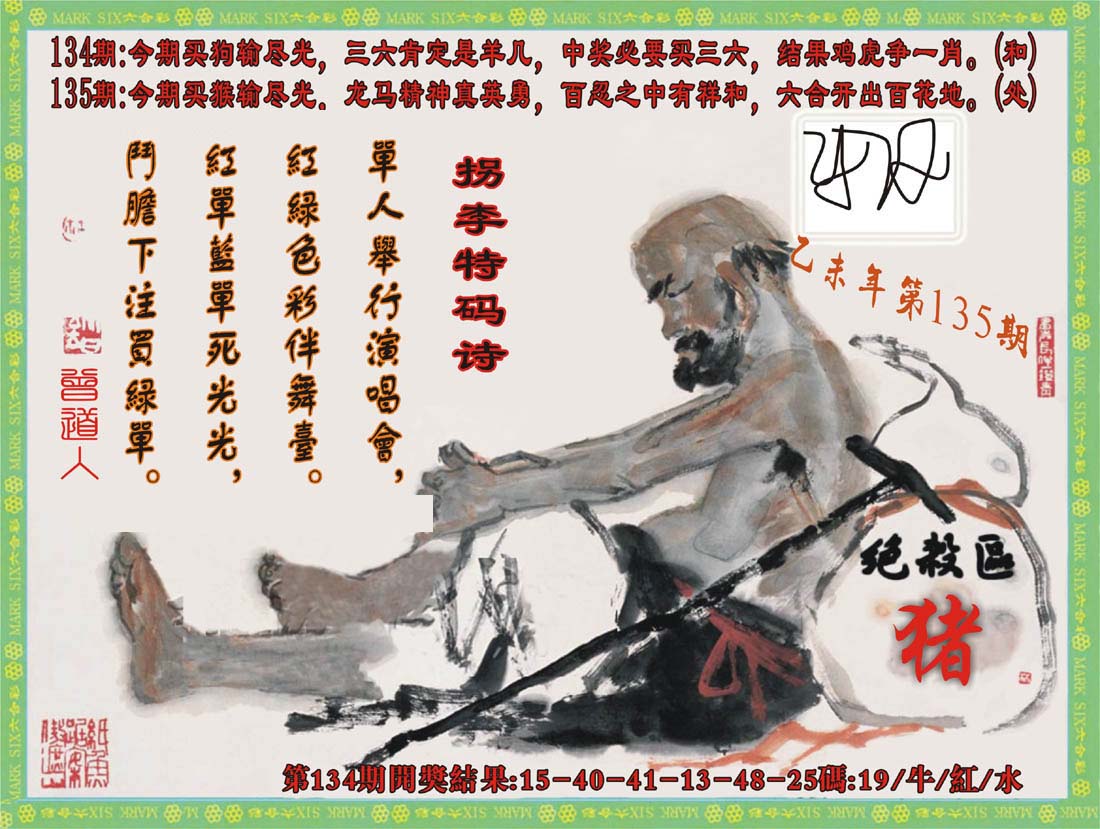 MARK SIX六合彩
134期:今期买狗输尽光，三六肯定是羊几，中奖必要买三六，结果鸡虎争一肖。(和)
135期:今期买猴输尽光．龙马精神真英勇，百忍之中有祥和，六合开出百花地。(处)
拐李特码诗
單人舉行演唱會，
紅綠色彩伴舞臺。
紅單藍單死光光，
鬥膽下注買綠單。
曾道人
乙未年第135期
绝殺區
猪
第134期開獎結果:15-40-41-13-48-25碼:19/牛/紅/水